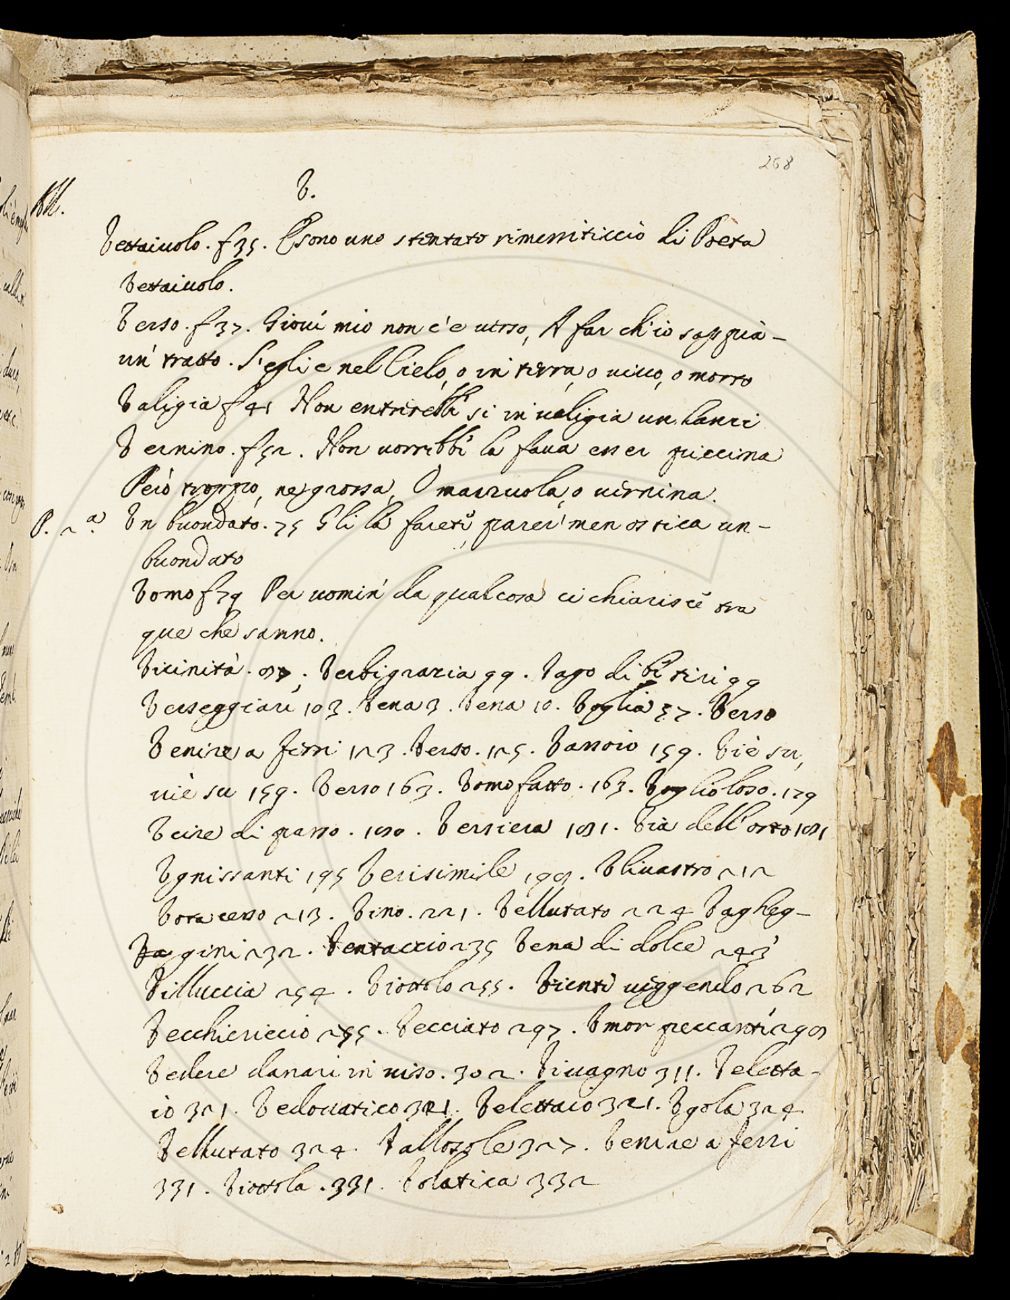 268
V.
Vettaiuolo. f 35. E sono uno stentato rimessiticcio di Poeta
Vettaiuolo.
Verso. f 37. Giovi mio non c'è verso, A far ch'io sappia
un tratto. S'egli è nel Cielo, o in terra, o vivo, o morto
Valigia f 41 Non entrerebb' si in valigia un
Vernino. f 52. Non vorrebbe la fava esser piccina
Però troppo, ne grossa, O marzuola, o vernina.
P. 2a Un buondato. 75 Gli la farete, parer men ostica un-
buondato
Vomo f 79 Per uomini da qualcosa ci chiarisce tra
que che sanno.
Vicinità. 87. Verbigrazia 99. Vago di 99
Verseggiare 103. Vena 3. Vena 10. Voglia 57. Verso
Venire a ferri 123. Verso. 125. Vassoio 159. Viè su,
viè su 159. Verso 163. Vomo fatto. 163. Voglioloso. 179
Vcire di passo. 180. Versiera 181. Via dell'orto 181
Vgnissanti 195 Verisimile 198. Vlivastro 212
Vota cesso 213. Vino. 221. Vellutato 224 Vagheg-
gini 232. Ventaccio 235 Vena di dolce 243
Villuccia 254. Viottolo 255. Vienti veggendo 262
Vecchiericcio 295. Vecciato 297. Vmor peccanti 298
Vedere danari in viso. 302. Vivagno 311. Veletta-
io 321. Vedovatico 321. Velettaio 321. Vgola 324
Vellutato 324. Vallozole 327. Venire a ferri
331. Viottola. 331. Volatica 332